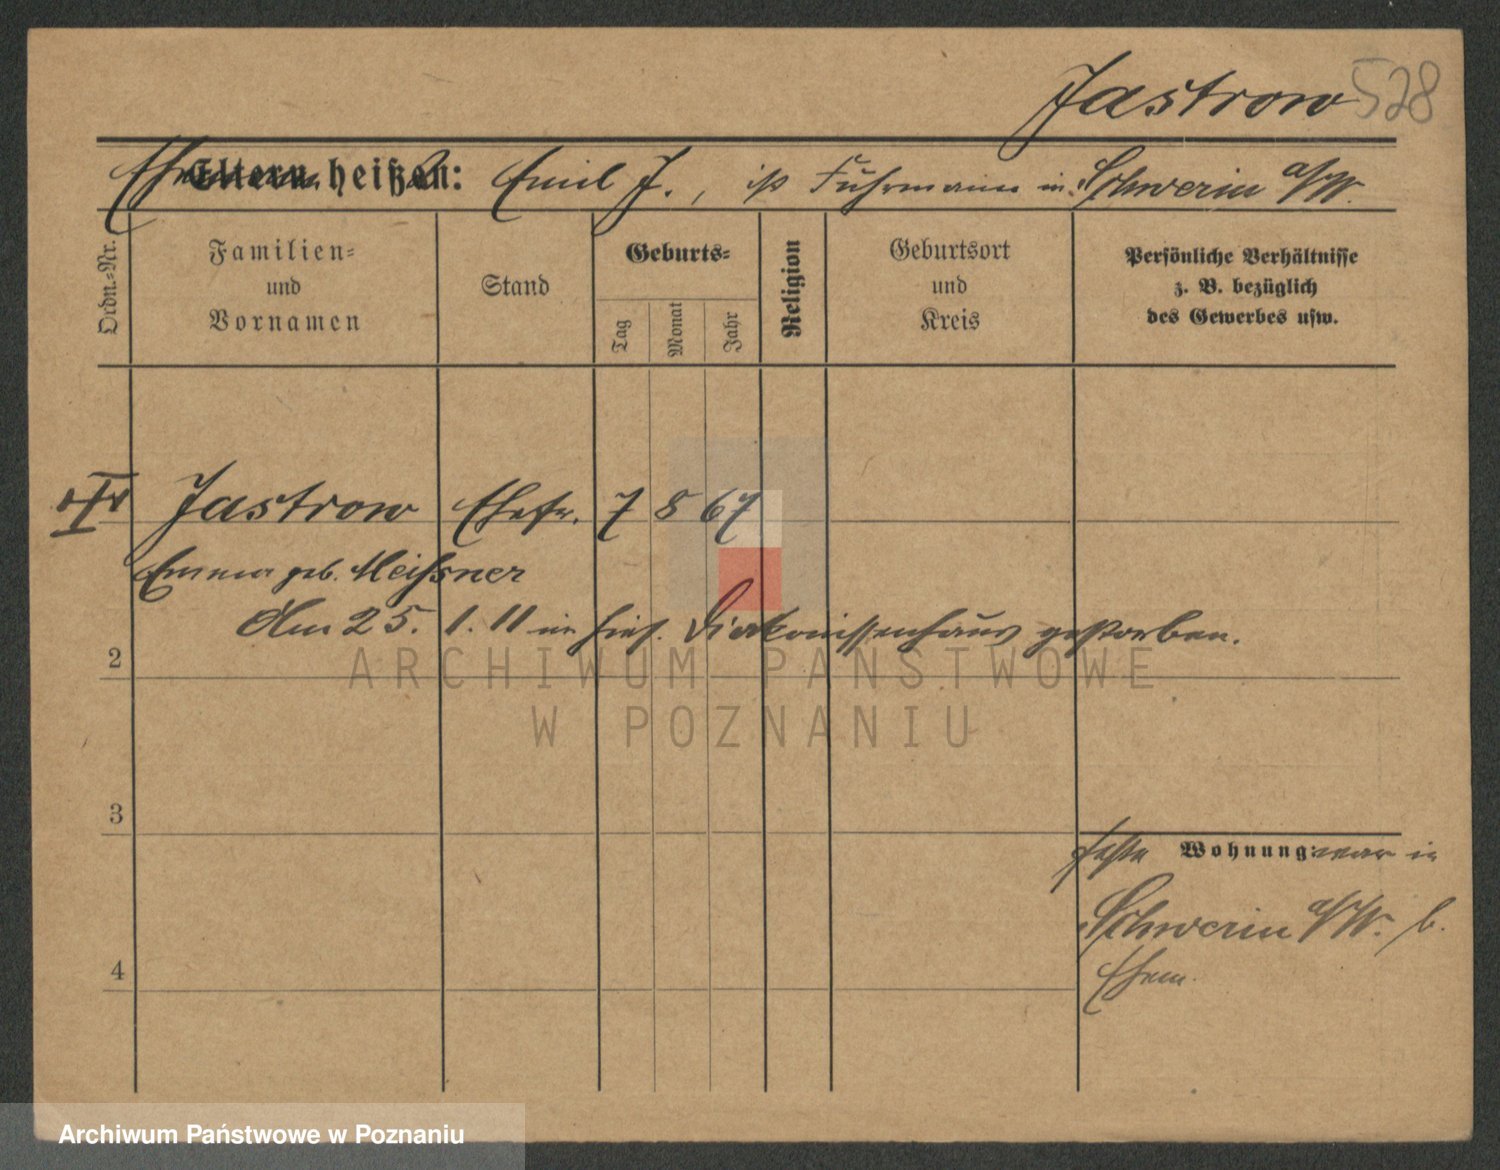 Jastrow 528
Ehemann Eltern heißen: Emil J., ist Fuhrmann in Schwerin a/W.
Ordn.-Nr.
Familien-
und
Vornamen
Stand
Geburts-
Tag
Monat
Jahr
Religion
Geburtsort
und
Kreis
Persönliche Verhältnisse
z. B. bezüglich
des Gewerbes usw.
Jastrow Ehefr. 7 8 67
Emma geb. Meißner
Am 25. 1. 11 im hies. Diakonissenhaus gestorben.
2
3
4
feste Wohnung: war in
Schwerin a/W. b.
Ehem.
ARCHIWUM PAŃSTWOWE
W POZNANIU
Archiwum Państwowe w Poznaniu